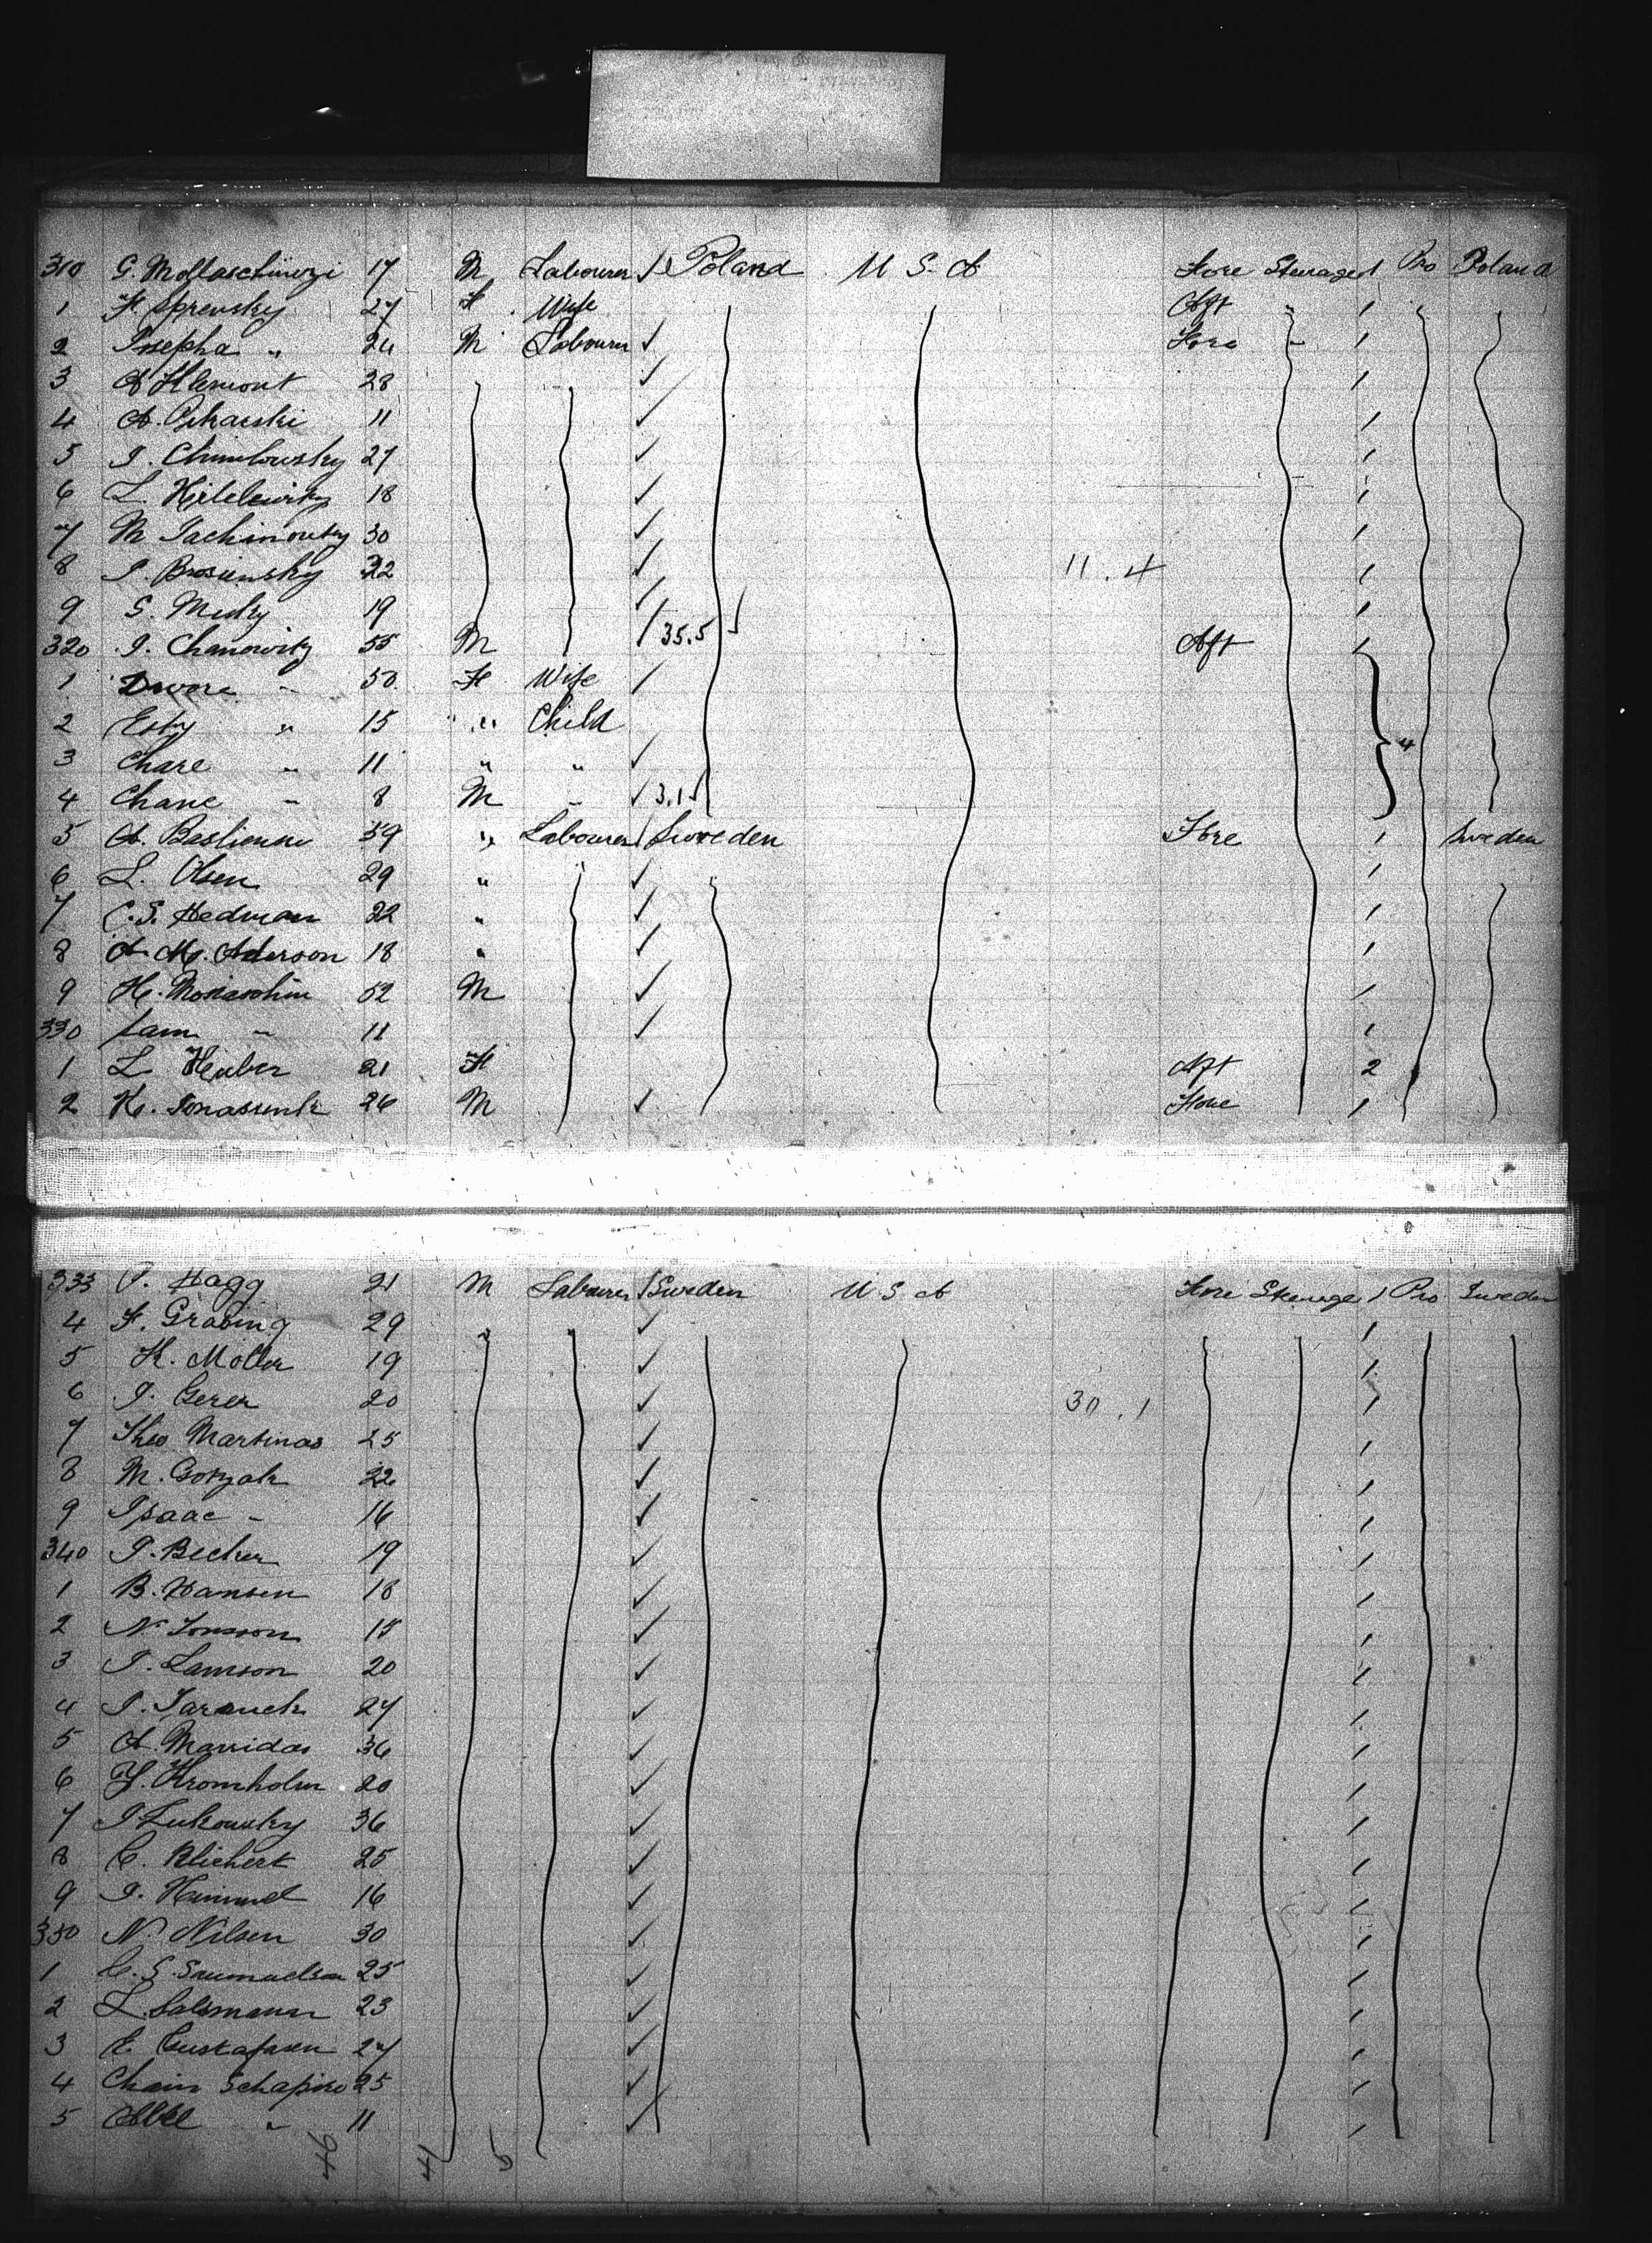 310 G. Mollaschinzi 17 M Labourer / Poland U S A Fore Steerage 1 Pro Poland
1 F. Sprensky 27 F Wife Aft " 1
2 Josepha " 24 M Labourer ✓ Fore " 1
3 A Klemont 28 ✓ 1
4 A. Pikarski 11 ✓ 1
5 I. Chmilowsky 27 ✓ 1
6 L. 18 ✓ 1
7 M Jachinowsky 30 ✓ 1
8 I. Brosunsky 22 ✓ 11.4 1
9 S. Medry 19 ✓ 1
320 I. Chanowitz 55 M / 35.5 Aft 1
1 Dwore " 50 F Wife /
2 Esty " 15 " Child
3 Chare " 11 " " ✓ 4
4 Chane " 8 M " ✓ 3.1
5 A. Bastienne 39 " Labourer / Sweden Fore 1 Sweden
6 L. Olsen 29 " ✓ 1
7 C. S. Hedman 22 " ✓ 1
8 A. M. Aderson 18 " ✓ 1
9 H. 52 M ✓ 1
330 Sam " 11 ✓ 1
1 L Heuber 21 F Aft 2
2 K. 26 M ✓ Fore 1
333 P. Hagg 21 M Labourer / Sweden U S A Fore Steerage 1 Pro Sweden
4 F. Graving 29 ✓ 1
5 K. Moller 19 ✓ 1
6 I. Gerer 20 ✓ 30.1 1
7 Theo Martinas 25 ✓ 1
8 M. Gorzak 22 ✓ 1
9 Isaac " 16 ✓ 1
340 I. Becker 19 ✓ 1
1 B. Hansen 18 ✓ 1
2 N. Jonsson 18 ✓ 1
3 I. Lamson 20 ✓ 1
4 I. Taranek 27 ✓ 1
5 A. Mavidas 36 ✓ 1
6 Y. Kromholm 20 ✓ 1
7 I Lukowsky 36 ✓ 1
8 C. Blichert 25 ✓ 1
9 I. Himmel 16 ✓ 1
350 N. Nilsen 30 ✓ 1
1 C. S. Saumuelson 25 ✓ 1
2 L. Salsmann 23 ✓ 1
3 E Gustafssen 27 ✓ 1
4 Chain Schapiro 25 ✓ 1
5 Abel " 11 ✓ 1